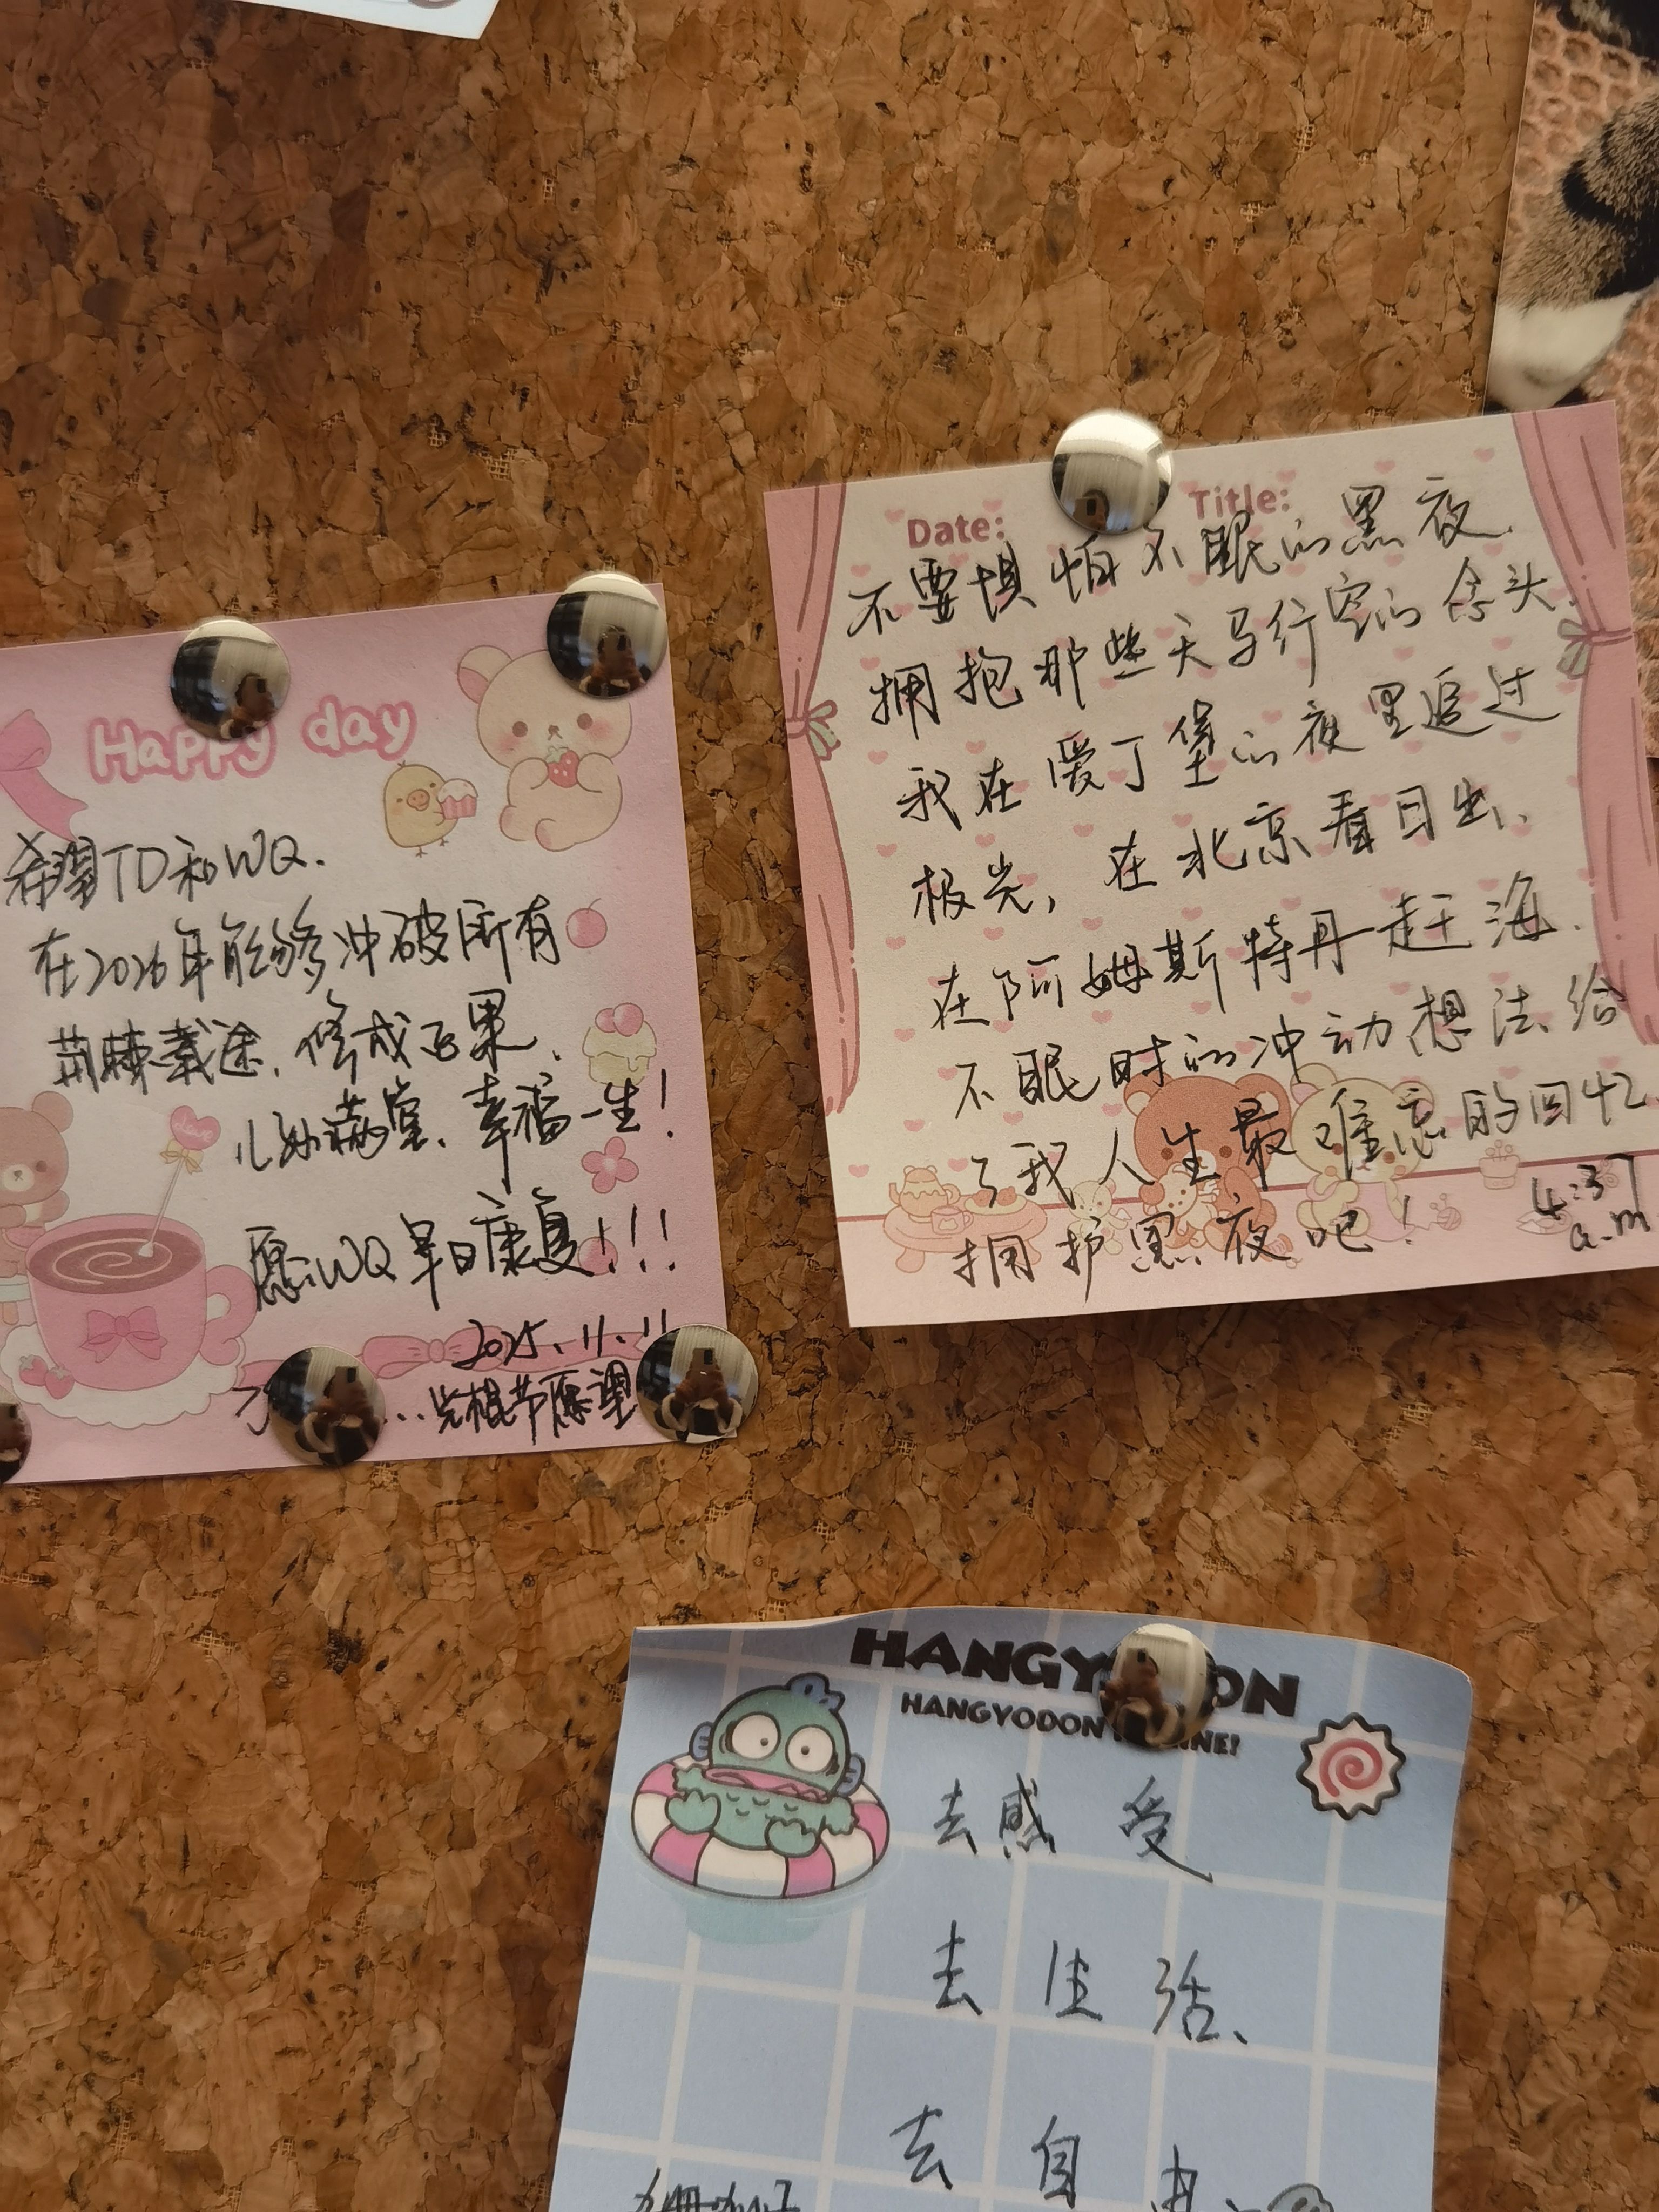 Happy day
希望TD和WQ.
在2026年能够冲破所有
荆棘载途、修成正果、
儿孙满堂、幸福一生！
愿WQ早日康复！！！
2025.11.11
...光棍节愿望
Date:
Title:
不要惧怕不眠的黑夜.
拥抱那些天马行空的念头.
我在爱丁堡的夜里追过
极光，在北京看日出、
在阿姆斯特丹赶海.
不眠时的冲动想法给
了我人生最难忘的回忆
拥护黑夜吧！
4:37
a.m
HANGYODON
HANGYODON
去感受
去生活、
去自由